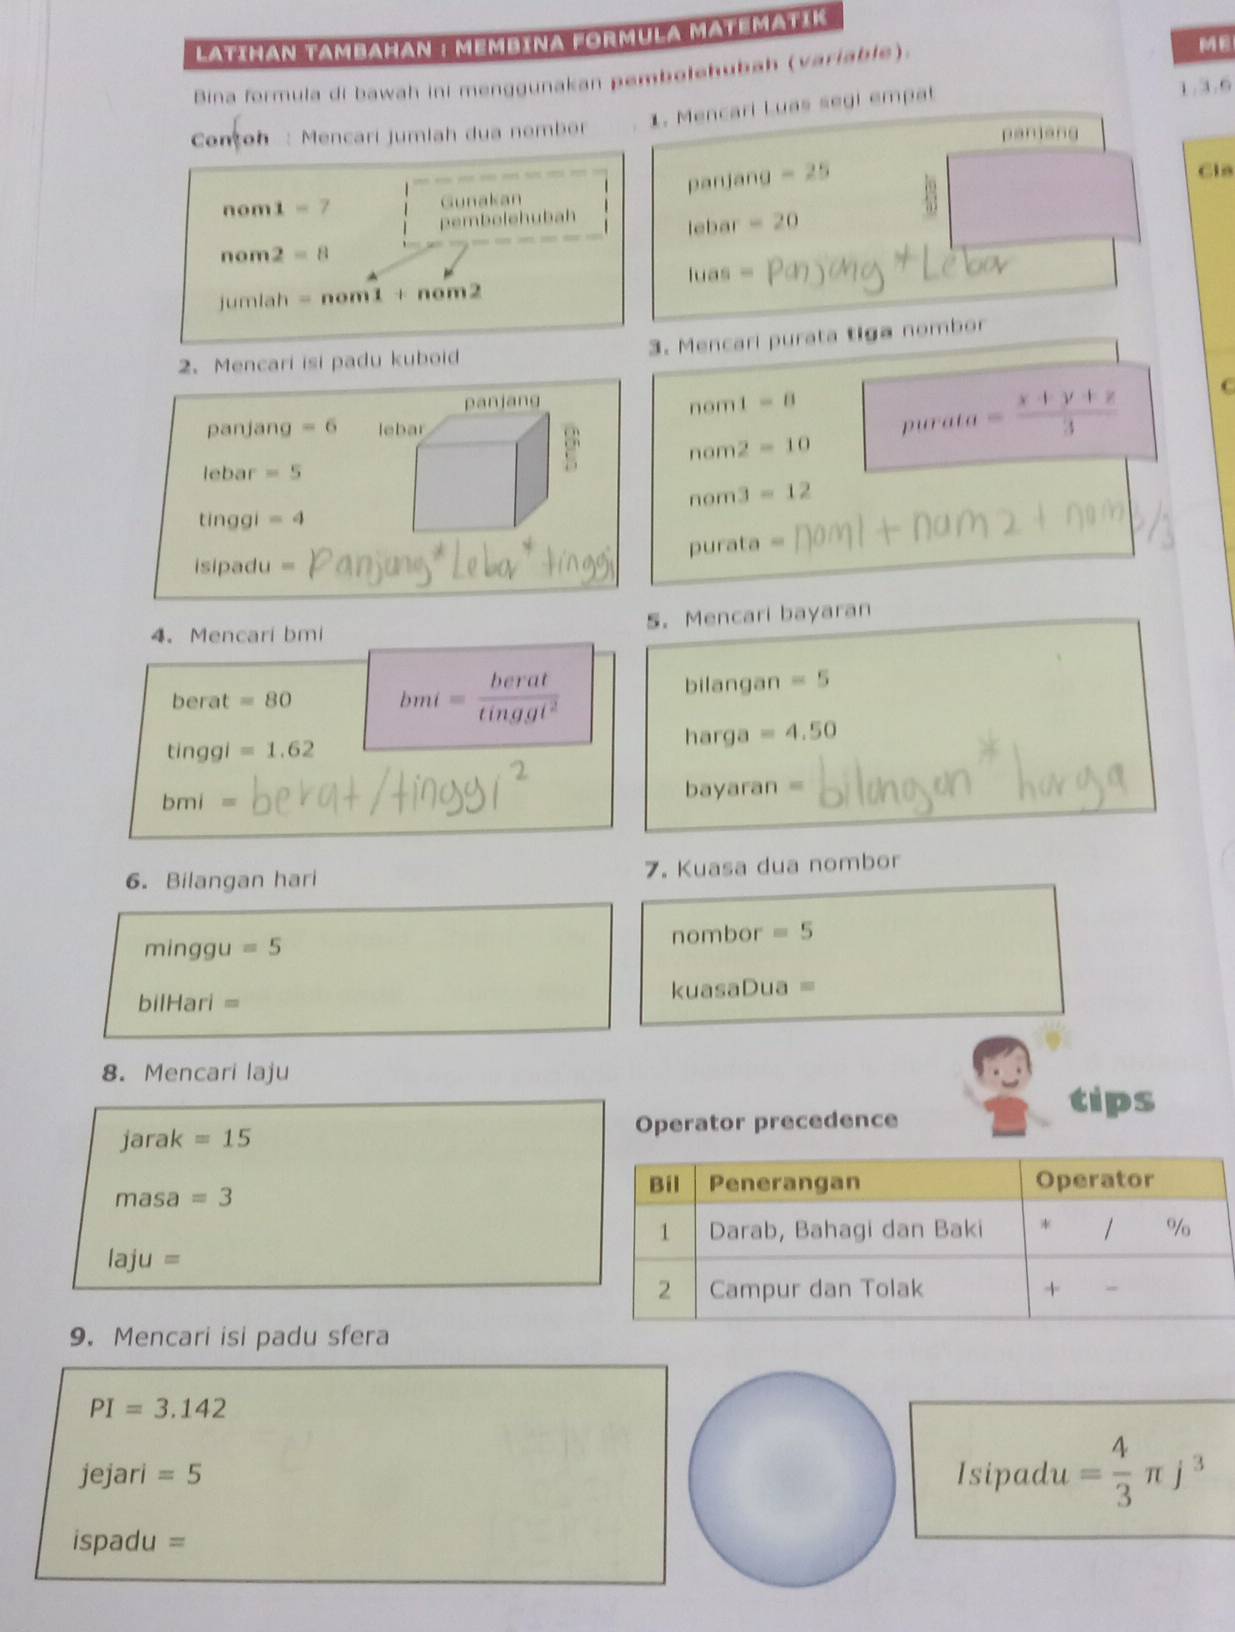 LATIHAN TAMBAHAN : MEMBINA FORMULA MATEMATIK
Bina formula di bawah ini menggunakan pembolehubah (variable).
Contoh : Mencari jumlah dua nombor
nom1 = 7
Gunakan
pembolehubah
nom2 = 8
jumlah = nom1 + nom2
1. Mencari Luas segi empat
panjang
panjang = 25
lebar
lebar = 20
luas = panjang * Lebar
2. Mencari isi padu kuboid
panjang
panjang = 6
lebar
tinggi
lebar = 5
tinggi = 4
isipadu = Panjang * Lebar * tinggi
3. Mencari purata tiga nombor
nom1 = 8
purata = x + y + z / 3
nom2 = 10
nom3 = 12
purata = nom1 + nom2 + nom3/3
4. Mencari bmi
berat = 80
bmi = berat / tinggi²
tinggi = 1.62
bmi = berat / tinggi²
5. Mencari bayaran
bilangan = 5
harga = 4.50
bayaran = bilangan * harga
6. Bilangan hari
minggu = 5
bilHari =
7. Kuasa dua nombor
nombor = 5
kuasaDua =
8. Mencari laju
jarak = 15
masa = 3
laju =
tips
Operator precedence
Bil Penerangan Operator
1 Darab, Bahagi dan Baki * / %
2 Campur dan Tolak + -
9. Mencari isi padu sfera
PI = 3.142
jejari = 5
ispadu =
Isipadu = 4/3 π j³
ME
1.3.6
Cla
C